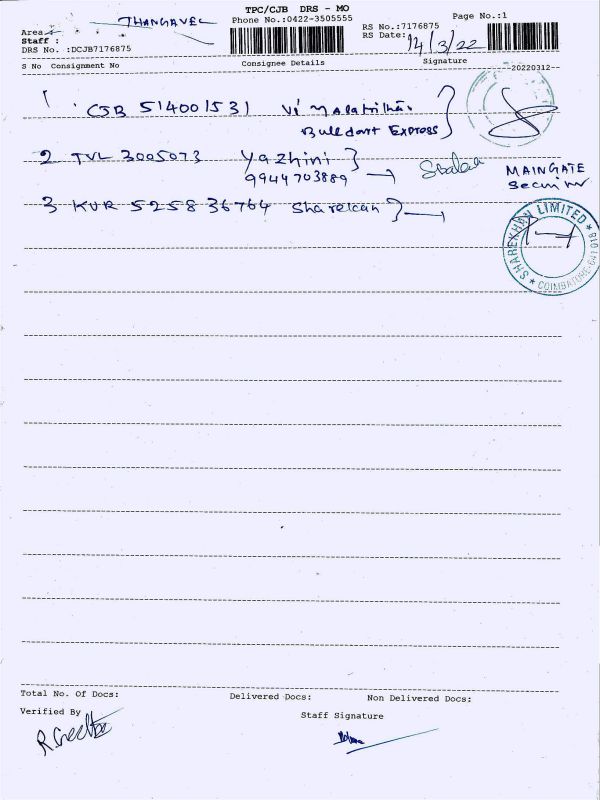 TPC/CJB DRS - MO
THANGAVEL
Phone No.:0422-3505555
Page No.:1
Area
RS No.:7176875
Staff :
RS Date: 14/3/22
DRS No. :DCJB7176875
S No Consignment No Consignee Details Signature
20220312
1 CJB 514001531
Bulldart Express
2 TVL 3005073 Yazhini
9944703889
MAINGATE
3 KUR 525836764 Sharekan
SHAREKHAN LIMITED * COIMBATORE-641 018 *
Total No. Of Docs: Delivered Docs: Non Delivered Docs:
Verified By
Staff Signature